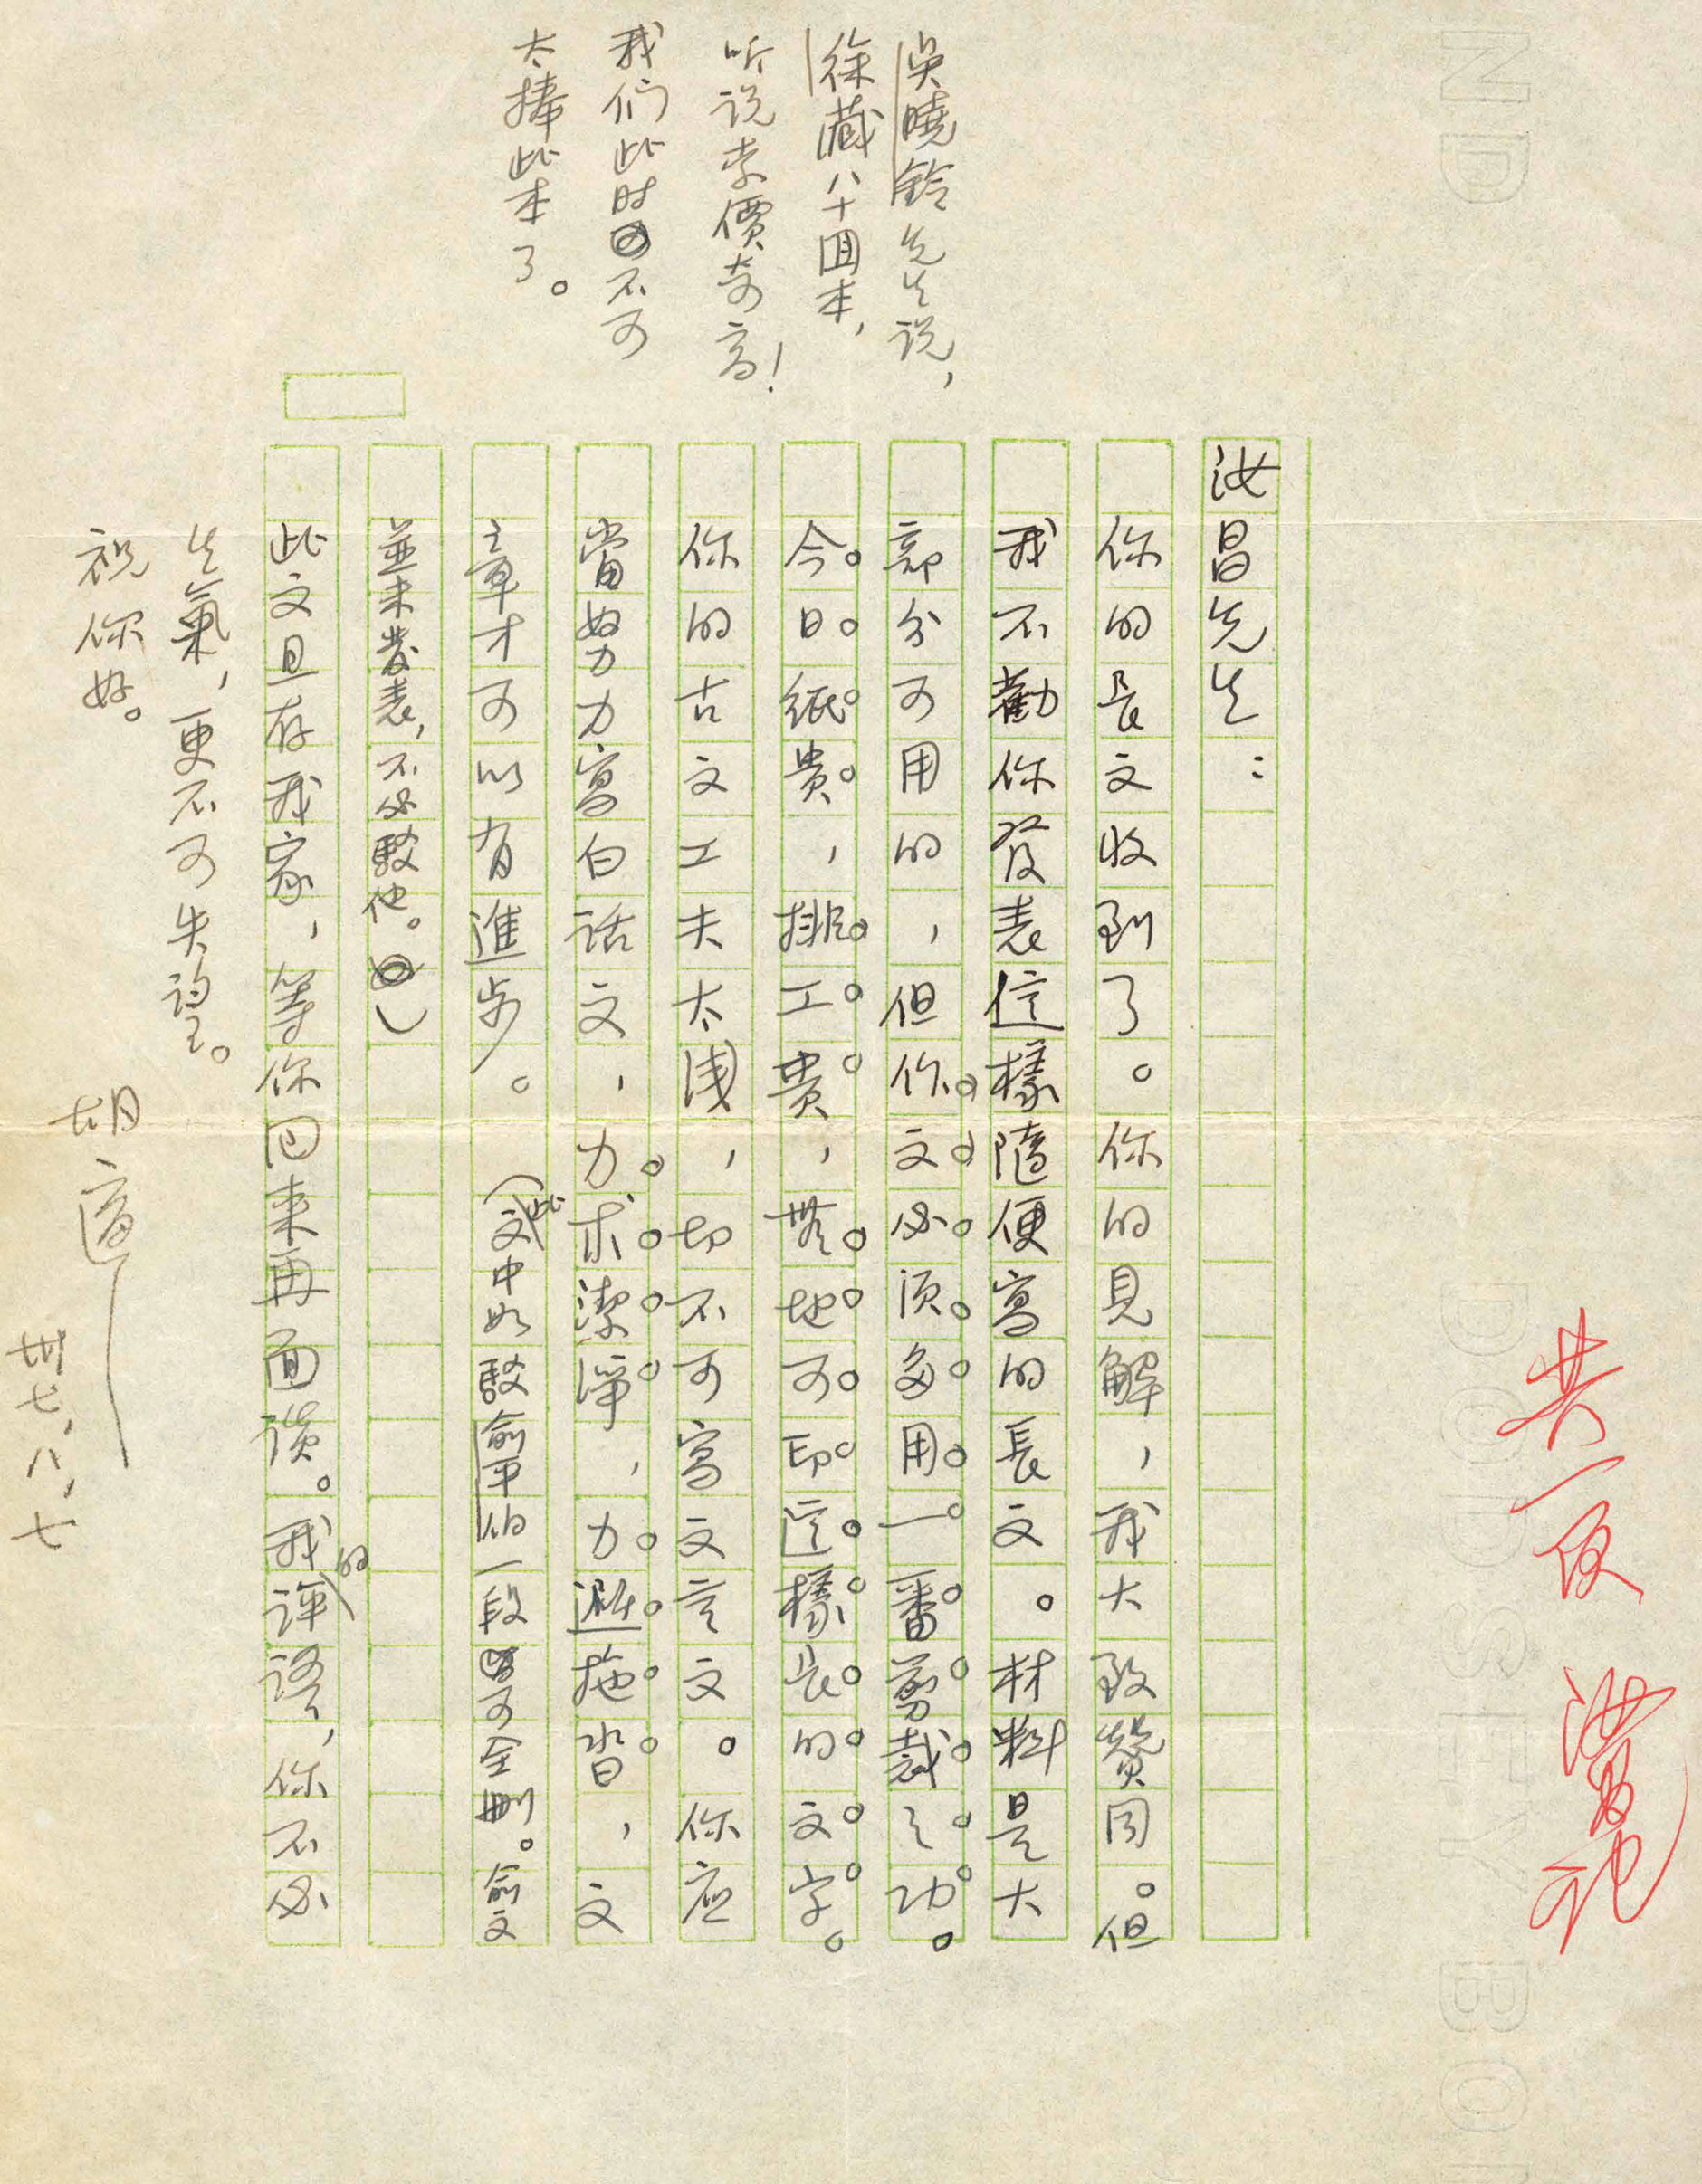 汝昌先生：
你的長文收到了。你的見解，我大致贊同。但
我不勸你發表這樣隨便寫的長文。材料是大
部分可用的，但你文必須多用一番剪裁之功。
今日紙貴，排工貴，無地可印這樣長的文字。
你的古文工夫太淺，切不可寫文言文。你應
當努力寫白話文，力求潔淨，力避拖沓，文
章才可以有進步。（此文中如駁俞平伯一段可全刪。俞文
並未發表，不必駁他。）
此文且存我家，等你回来再面談。我的評語，你不必
生氣，更不可失望。
祝你好。
胡適
卅七，八，七
吳曉鈴先生说，
徐藏八十囬本，
听说索價奇高！
我们此时不可
太捧此本了。
共一页
ND
DODSLEY BO